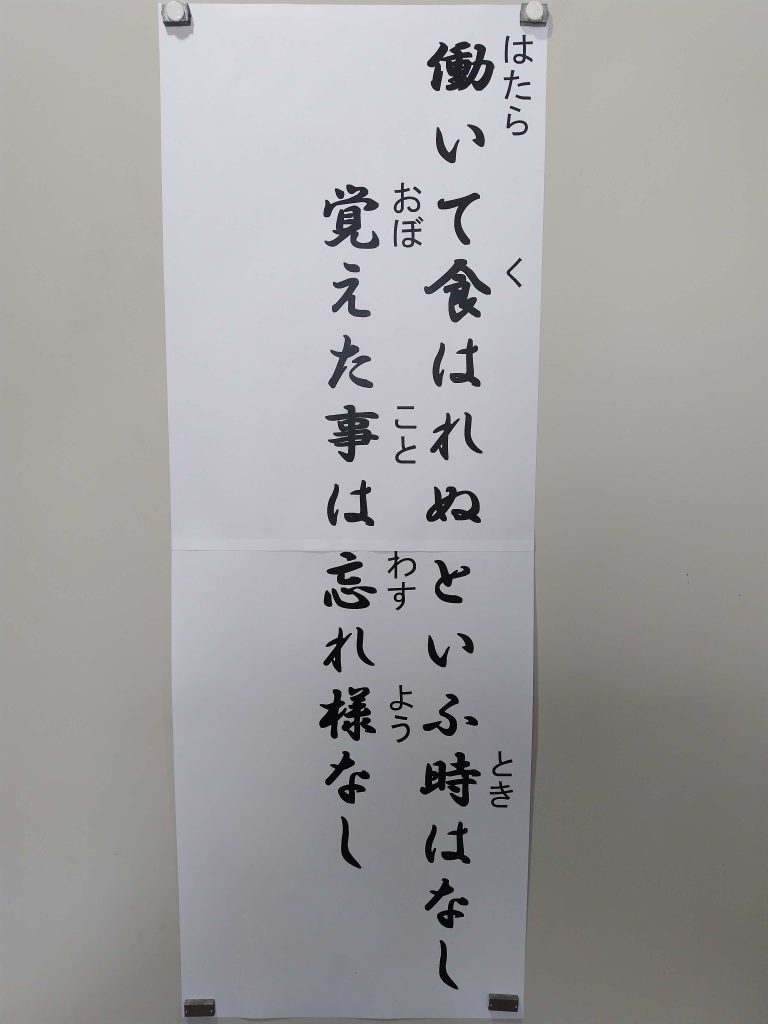 働いて食はれぬといふ時はなし
はたらくとき
覚えた事は忘れ様なし
おぼことわすよう